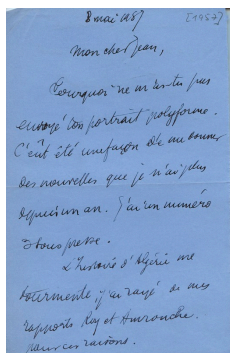 8 mai 1957 [1957]
Mon cher Jean,
Pourquoi ne m'as-tu pas
envoyé ton portrait polyforme.
C'eût été une façon de me donner
des nouvelles que je n'ai plus
depuis un an. J'ai un numéro
sous presse.
L'histoire d'Algérie me
tourmente, j'ai rayé de mes
rapports Roy et Amrouche.
pour ces raisons.